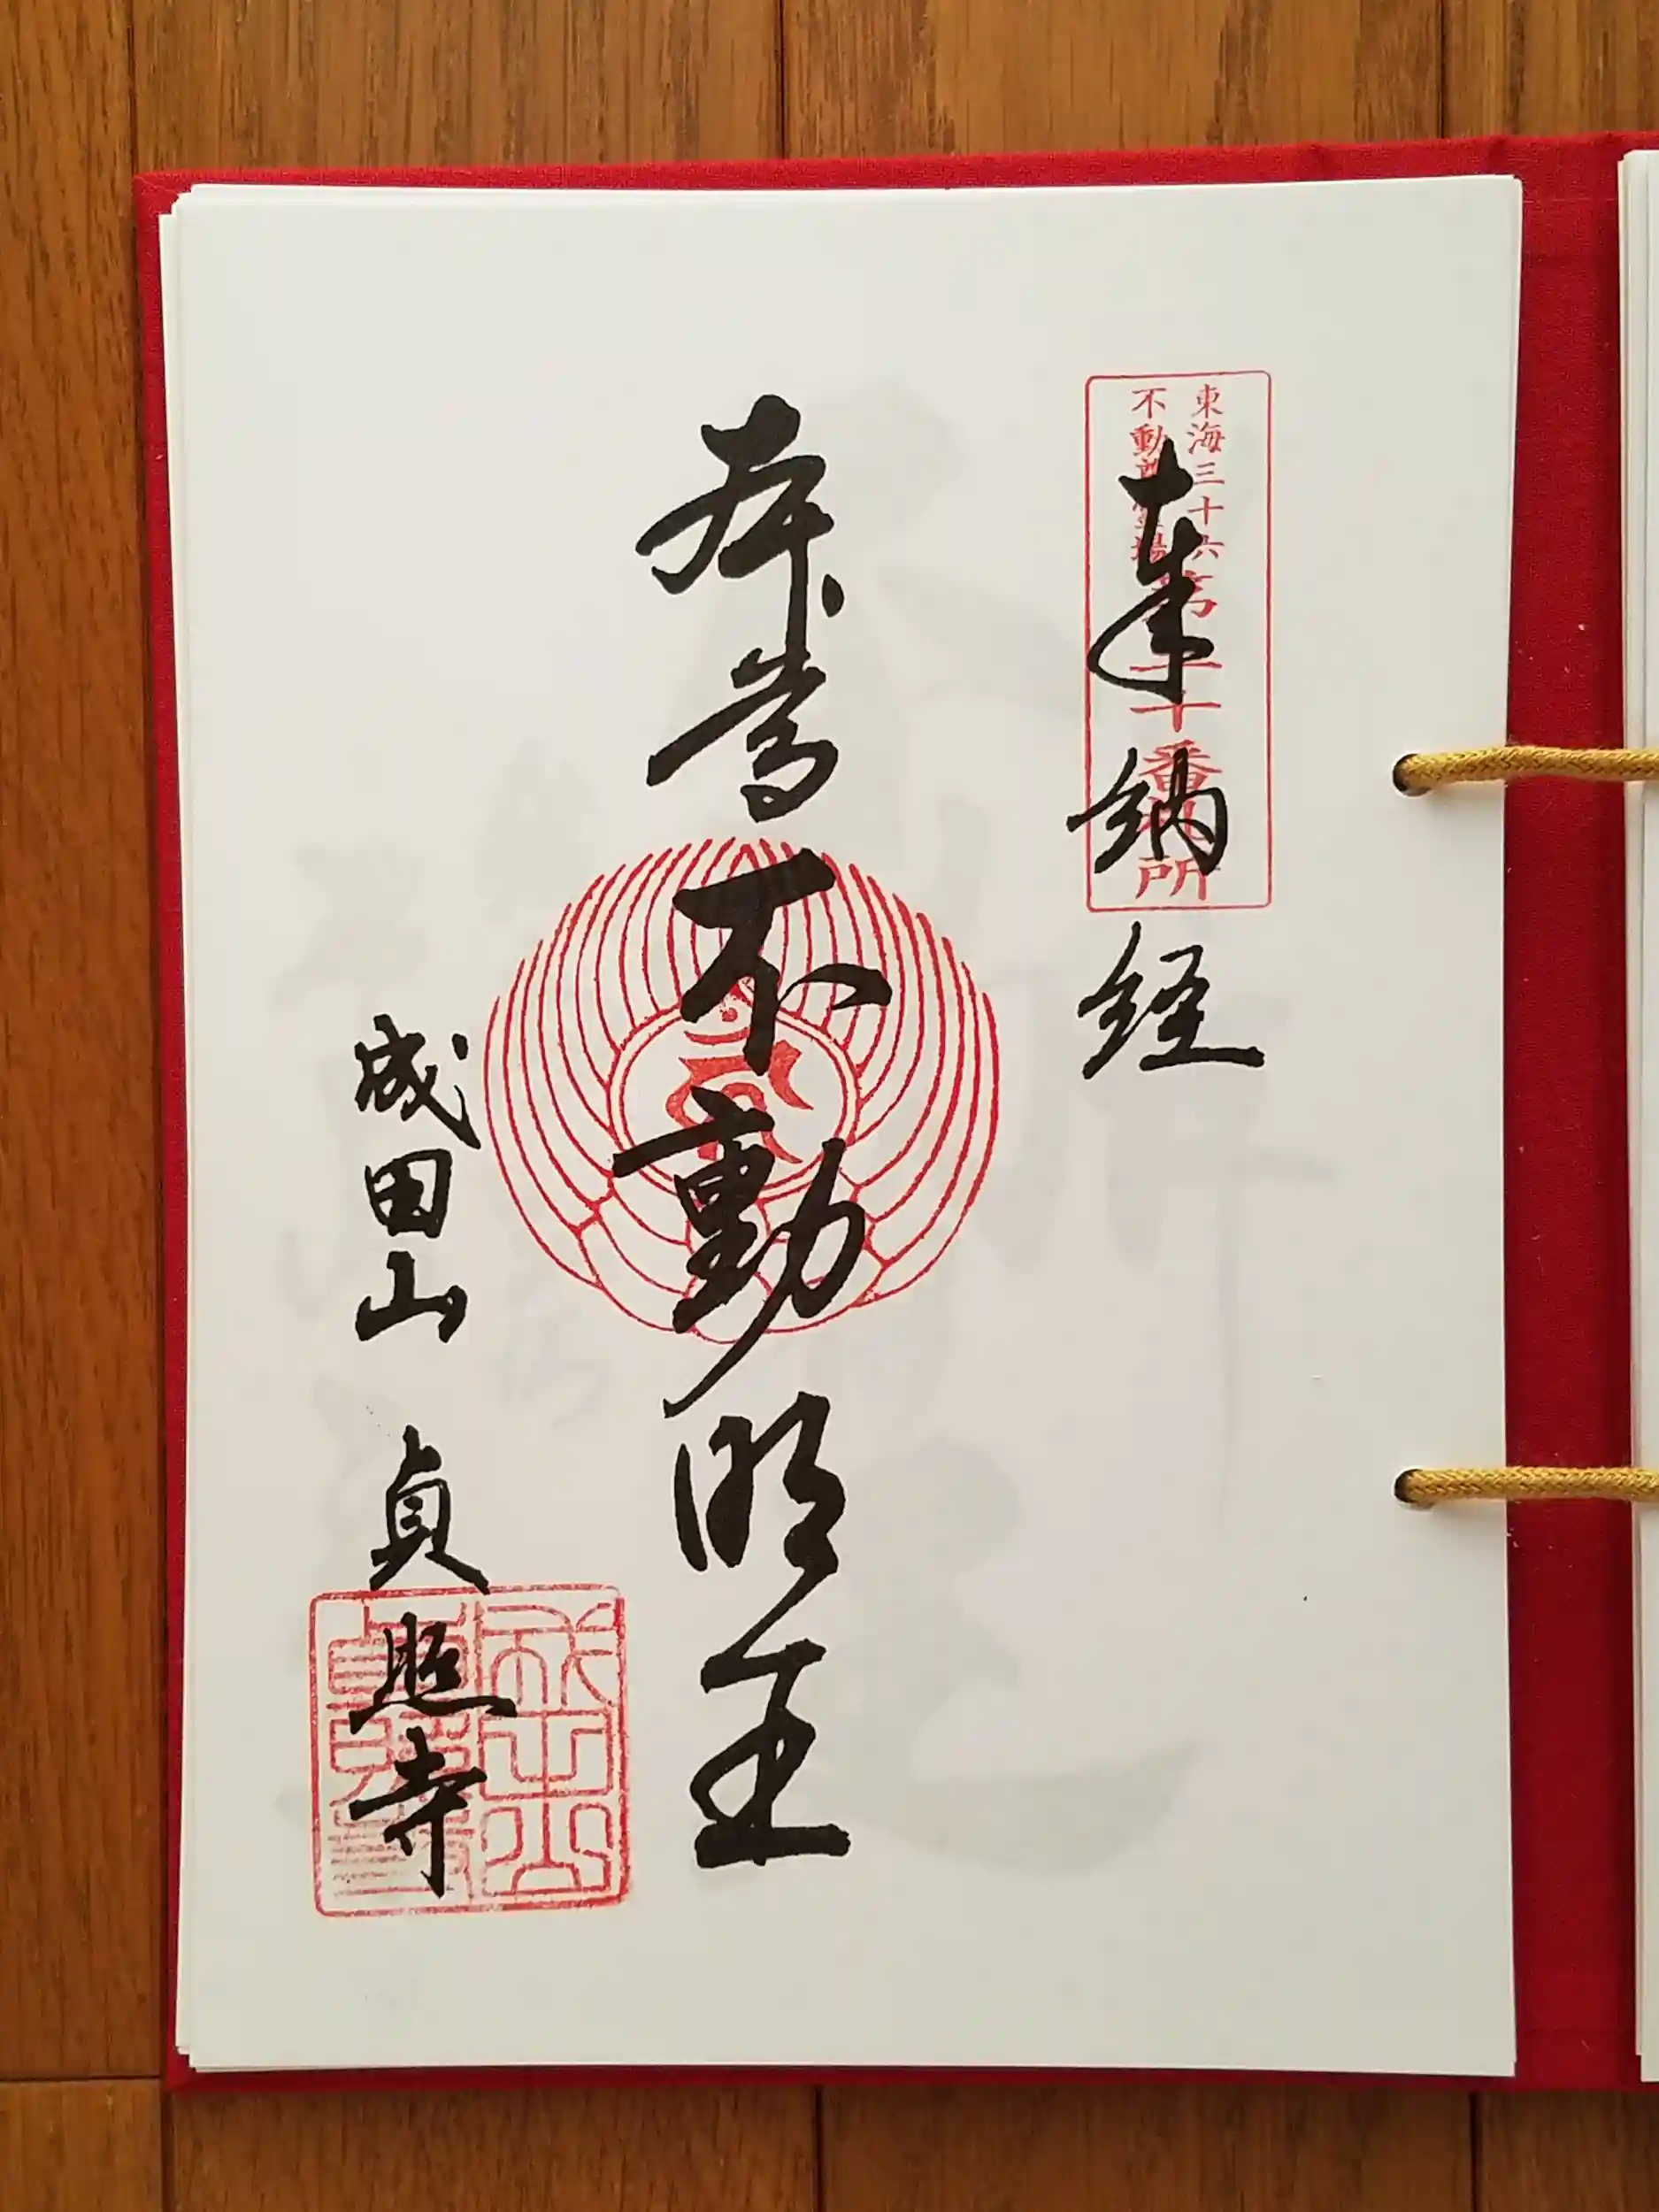 東海三十六
不動尊霊場
第二十番札所
奉納経
本尊不動明王
成田山 貞照寺
成田山